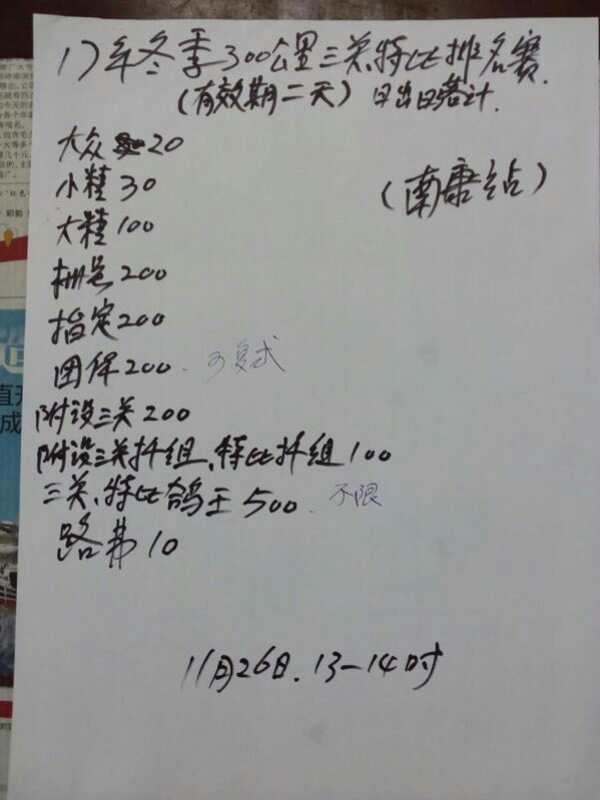 17年冬季300公里三关、特比排名赛.
(有效期二天) 日出日落计.
(南康站)
大众 20
小精 30
大精 100
栅号 200
指定 200
团体 200. 可复式
附设三关 200
附设三关抔组、特比抔组 100
三关、特比鸽王 500. 不限
路费 10
11月26日. 13-14时
直升
成